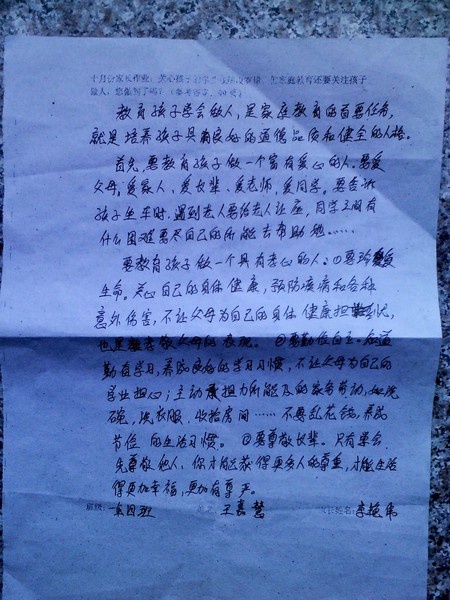 十月份家长作业：关心孩子的学习没有错，但家庭教育还要关注孩子
做人，您做到了吗？（参考答字，90
教育孩子学会做人，是家庭教育的首要任务，
就是培养孩子具有良好的道德品质和健全的人格。
首先，要教育孩子做一个富有爱心的人。要爱
父母、爱家人、爱长辈、爱老师、爱同学。要告诉
孩子坐车时，遇到老人要给老人让座，同学之间有
什么困难要尽自己的所能去帮助他……
要教育孩子做一个具有孝心的人。①要珍爱
生命。关心自己的身体健康，预防疾病和各种
意外伤害，不让父母为自己的身体健康担忧，
也是孝敬父母的表现。②要勤俭自主。知道
勤奋学习，养成良好的学习习惯，不让父母为自己的
学业担心；主动承担力所能及的家务劳动，如洗
碗，洗衣服、收拾房间……不要乱花钱，养成
节俭的生活习惯。③要尊敬长辈。只有学会
先尊敬他人，你才能获得更多人的尊重，才能生活
得更加幸福，更加有尊严。
班级：一.四班 王嘉慧 家长姓名：李艳伟